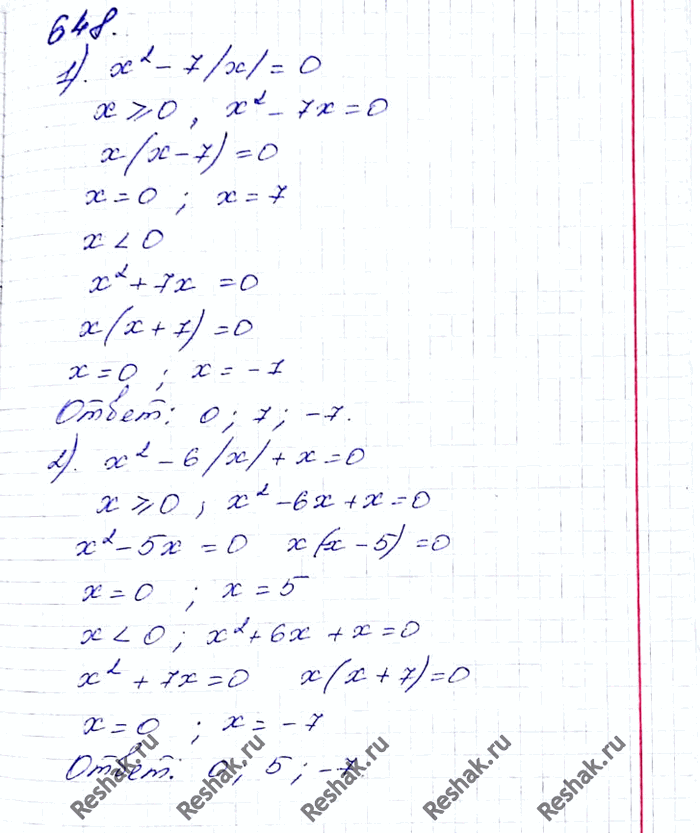 648.
1). x² - 7/x/ = 0
x ⩾ 0, x² - 7x = 0
x(x - 7) = 0
x = 0 ; x = 7
x < 0
x² + 7x = 0
x(x + 7) = 0
x = 0 ; x = -7
Ответ: 0; 7; -7.
2). x² - 6/x/ + x = 0
x ⩾ 0 ; x² - 6x + x = 0
x² - 5x = 0 x(x - 5) = 0
x = 0 ; x = 5
x < 0 ; x² + 6x + x = 0
x² + 7x = 0 x(x + 7) = 0
x = 0 ; x = -7
Ответ: 0; 5; -7
Reshak.ru Reshak.ru Reshak.ru Reshak.ru Reshak.ru